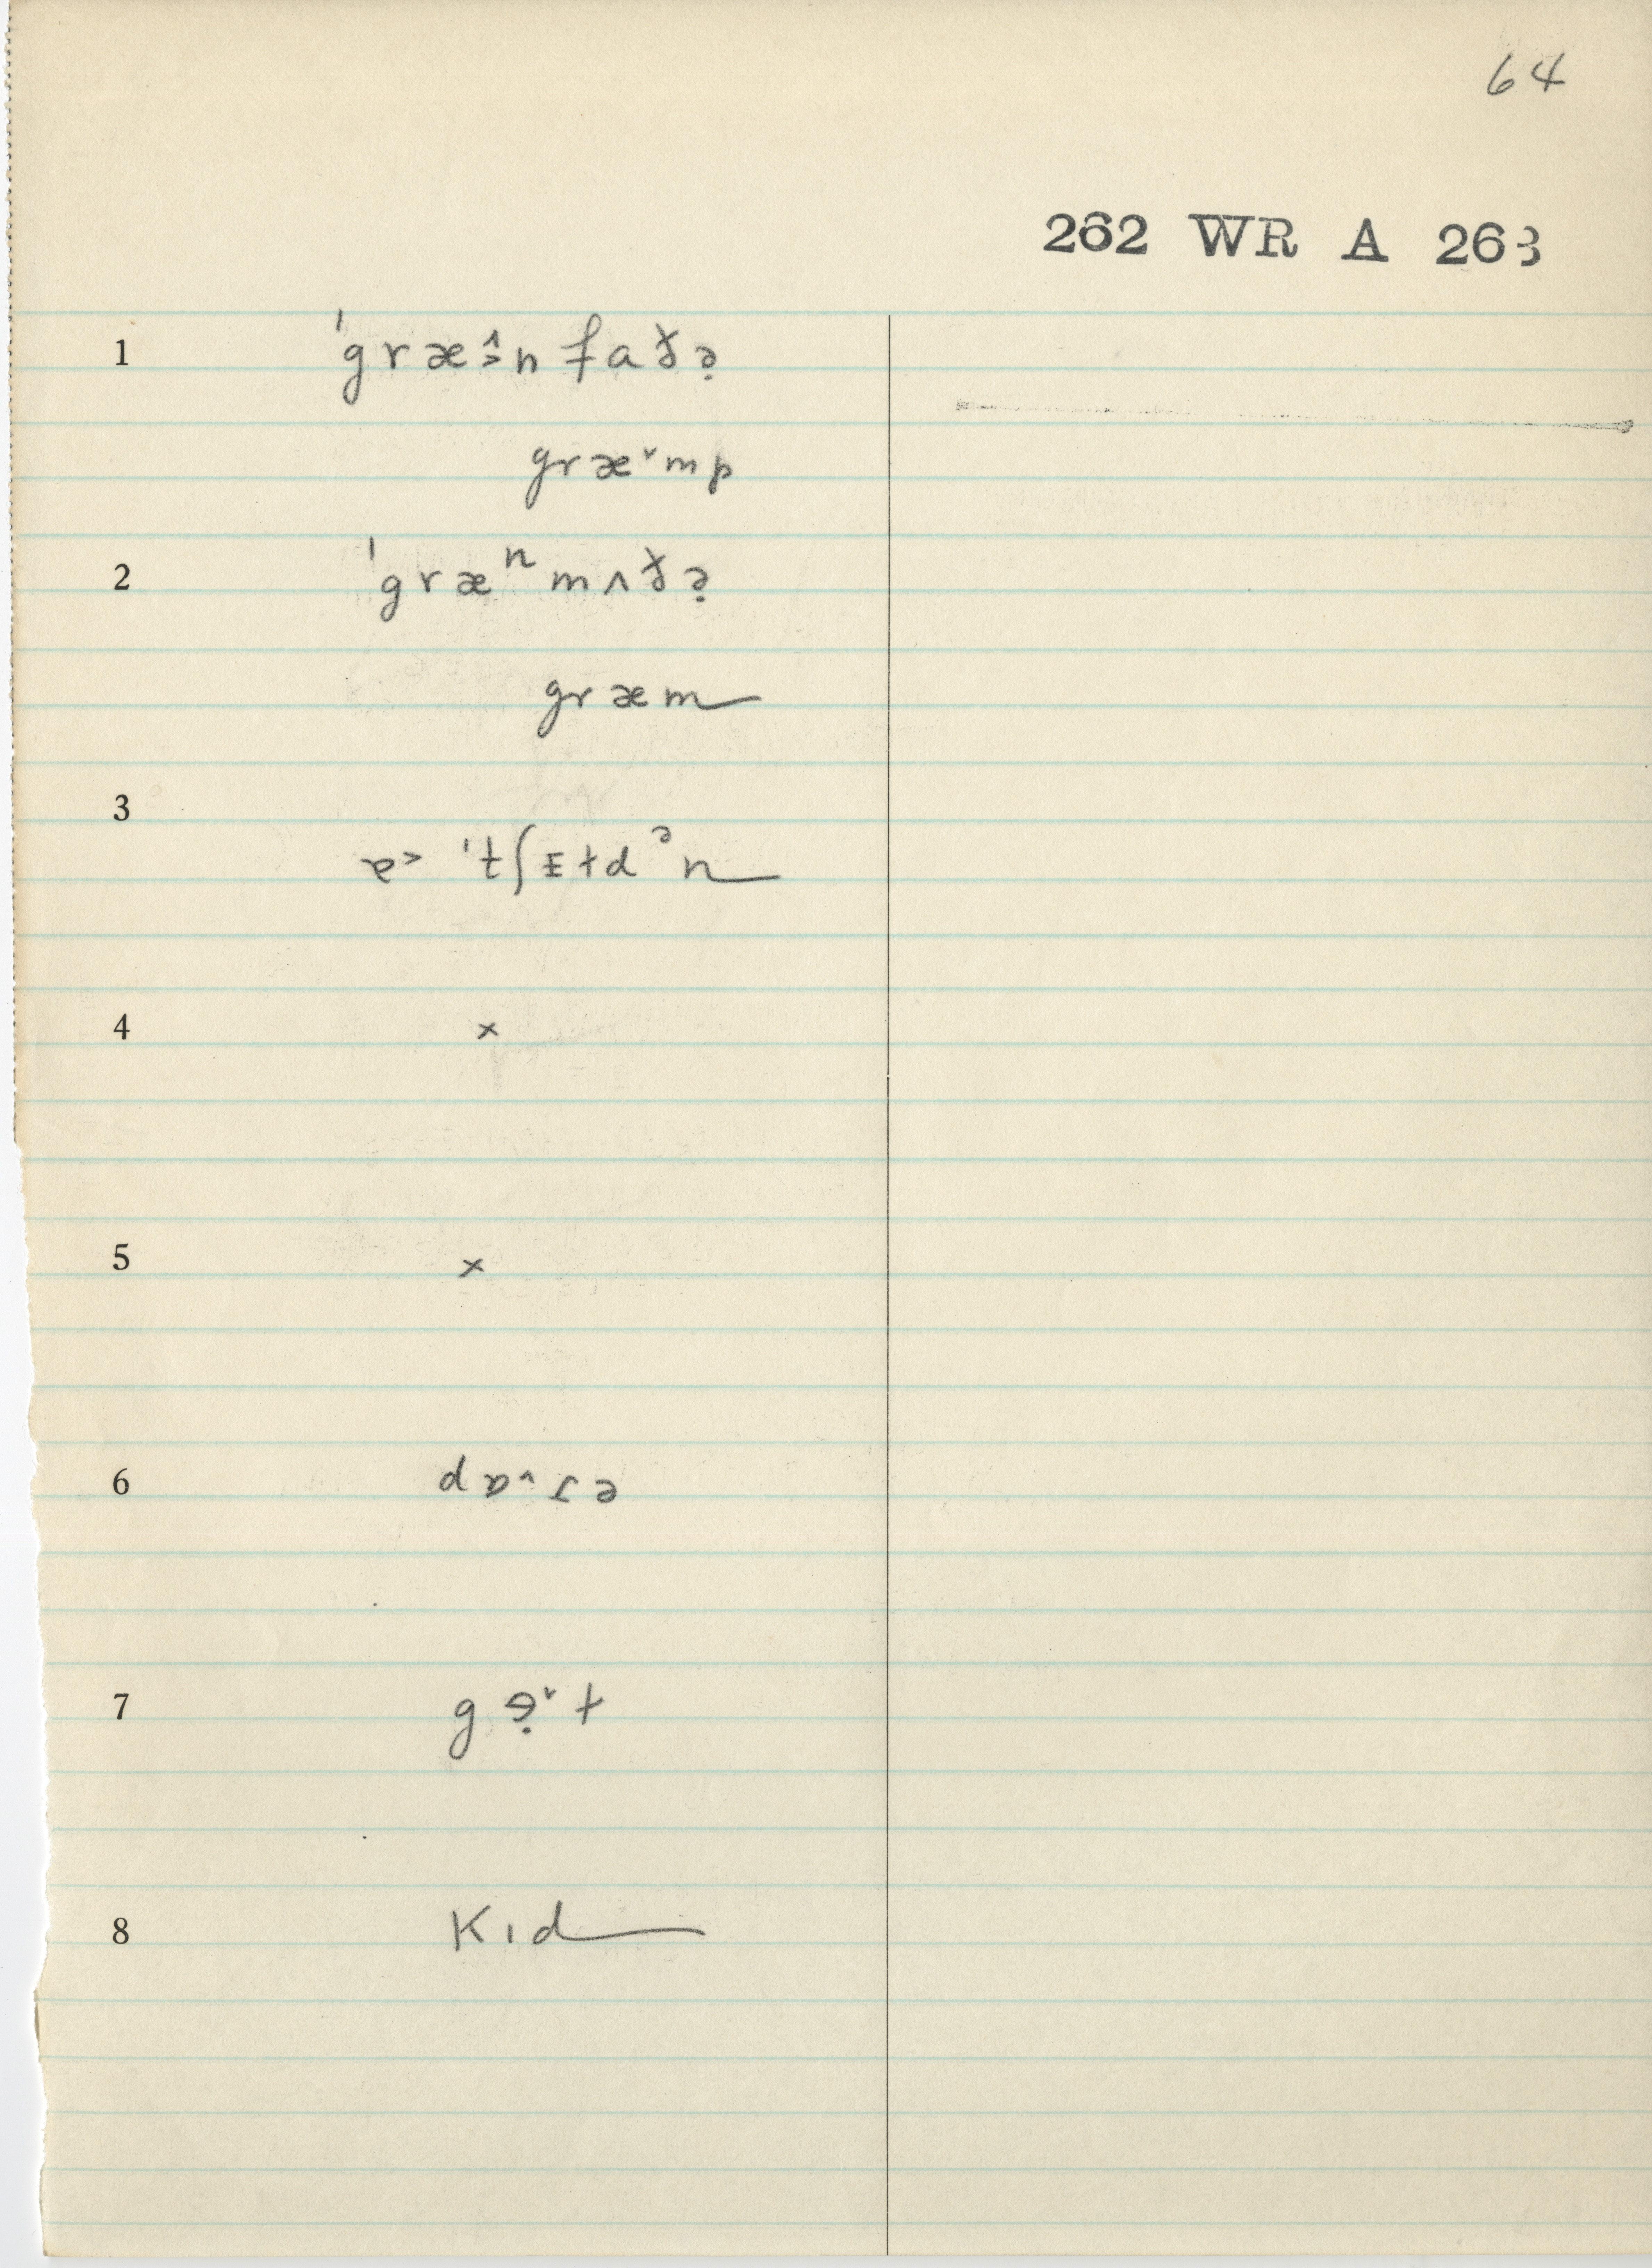 64
262 WR A 263
1 ˈgræ̂˃n faðə̣
græ˅mp
2 ˈgræⁿmʌðə̣
græm
3 ɒ˂ ˈtʃɪ̵ɫdᵊn
4 ×
5 ×
6 dɒ˄ɾə
7 gɘ̣˄ɫ
8 Kıd